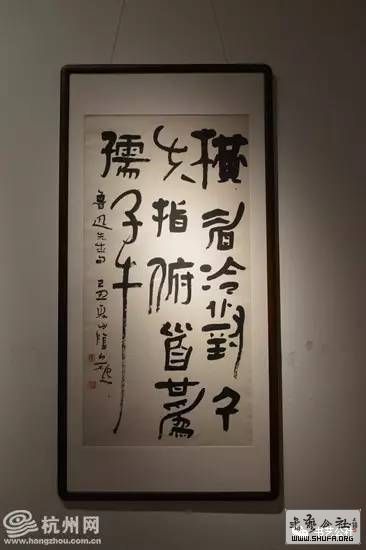 橫眉冷對千
夫指俯首甘爲
孺子牛
魯迅先生句
杭州网
www.hangzhou.com.cn
书艺公社
WWW.SHUFA.ORG